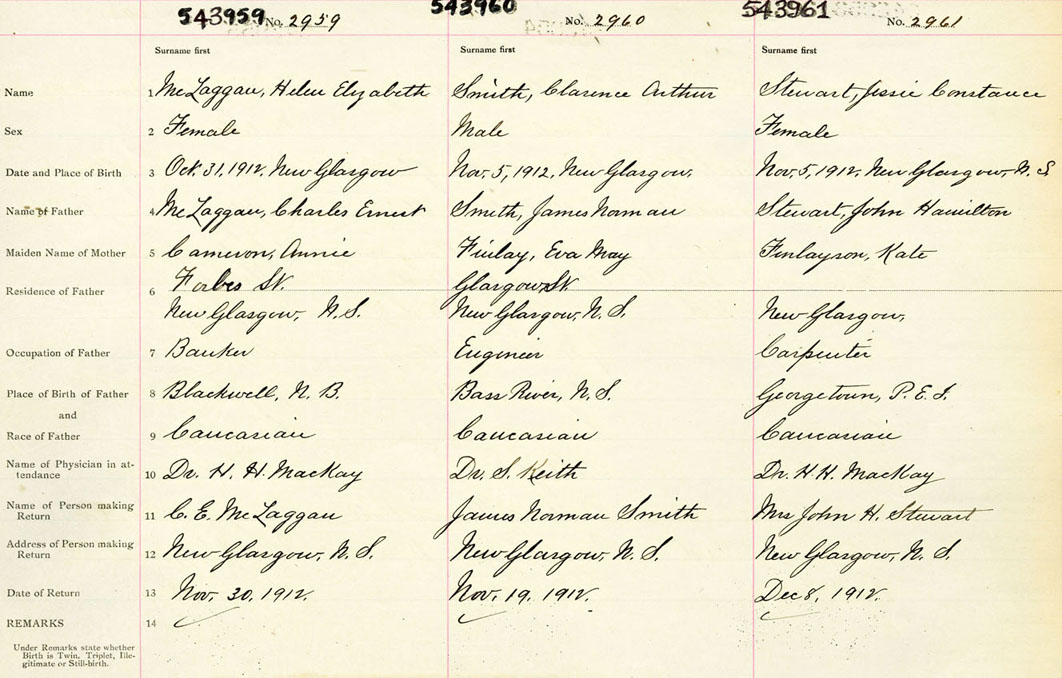 543959 No. 2959 543960 No. 2960 543961 No. 2961
Surname first Surname first Surname first
Name 1 McLaggan, Helen Elizabeth Smith, Clarence Arthur Stewart, Jessie Constance
Sex 2 Female Male Female
Date and Place of Birth 3 Oct. 31, 1912, New Glasgow Nov. 5, 1912, New Glasgow, Nov. 5, 1912, New Glasgow, N. S
Name of Father 4 McLaggan, Charles Ernest Smith, James Norman Stewart, John Hamilton
Maiden Name of Mother 5 Cameron, Annie Finlay, Eva May Finlayson, Kate
Residence of Father 6 Forbes St. Glasgow St
New Glasgow, N. S. New Glasgow, N. S. New Glasgow,
Occupation of Father 7 Banker Engineer Carpenter
Place of Birth of Father 8 Blackwell, N. B. Bass River, N. S. Georgetown, P. E. I.
and
Race of Father 9 Caucasian Caucasian Caucasian
Name of Physician in at-
tendance 10 Dr. H. H. MacKay Dr. S. Keith Dr. H. H. MacKay
Name of Person making
Return 11 C. E. McLaggan James Norman Smith Mrs John H. Stewart
Address of Person making
Return 12 New Glasgow, N. S. New Glasgow, N. S. New Glasgow, N. S.
Date of Return 13 Nov. 30, 1912. Nov. 19, 1912. Dec 8, 1912.
REMARKS 14
Under Remarks state whether
Birth is Twin, Triplet, Ille-
gitimate or Still-birth.